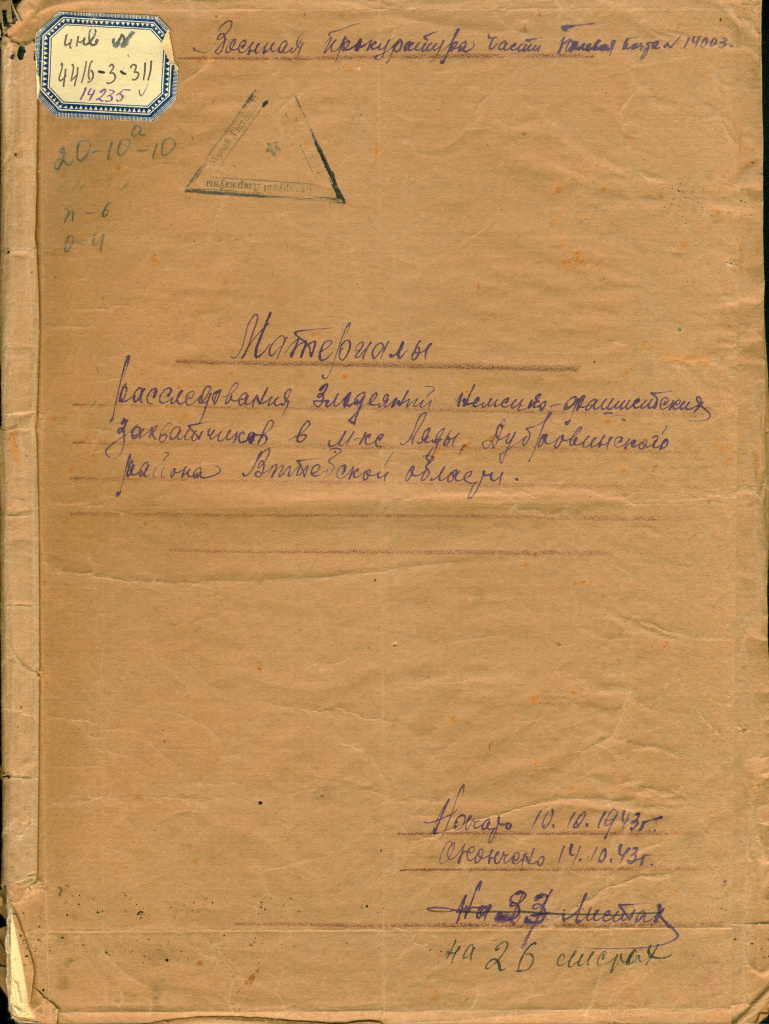 инв №
4416-3-311
14235
Военная прокуратура части Полевая почта № 14003.
20-10а-10
п-6
0-4
Материалы
расследования Злодеяний немецко-фашистских
захватчиков в м-ке Ляды, Дубровинского
района Витебской области.
Начато 10.10.1943г.
Окончено 14.10.43г.
На 27 Листах
на 26 листах